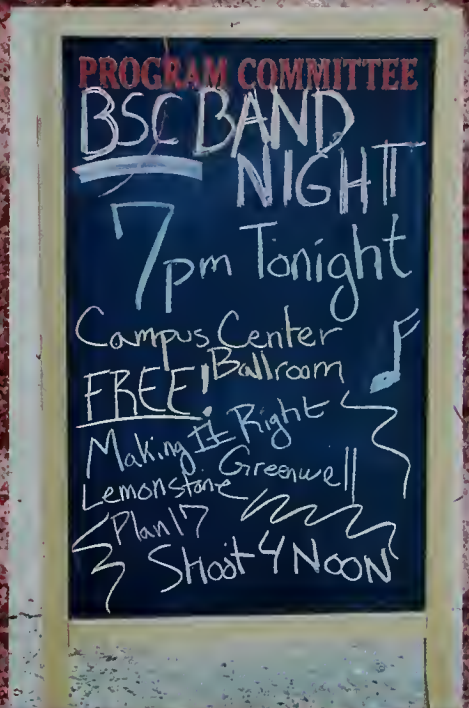 PROGRAM COMMITTEE
BSC BAND
NIGHT
7pm Tonight
Campus Center
FREE! Ballroom
Making It Right
Greenwell
Lemonstone
Plan 17
Shoot 4 NOON